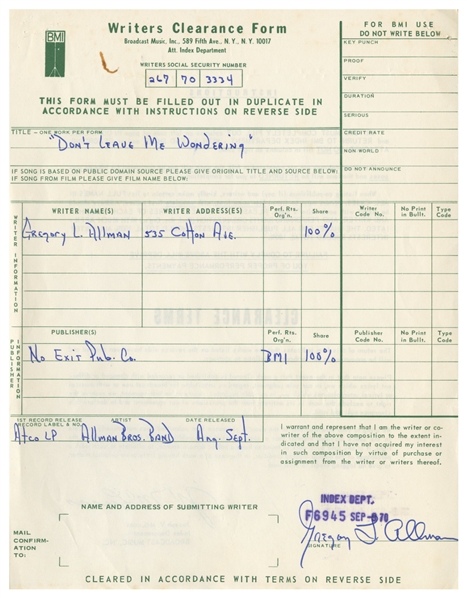 BMI
Writers Clearance Form
Broadcast Music, Inc., 589 Fifth Ave., N. Y., N. Y. 10017
Att. Index Department
WRITERS SOCIAL SECURITY NUMBER
267 70 3334
THIS FORM MUST BE FILLED OUT IN DUPLICATE IN
ACCORDANCE WITH INSTRUCTIONS ON REVERSE SIDE
FOR BMI USE
DO NOT WRITE BELOW
KEY PUNCH
PROOF
VERIFY
DURATION
SERIOUS
CREDIT RATE
NON WORLD
DO NOT ANNOUNCE
TITLE - ONE WORK PER FORM
"Don't Leave Me Wondering"
IF SONG IS BASED ON PUBLIC DOMAIN SOURCE PLEASE GIVE ORIGINAL TITLE AND SOURCE BELOW:
IF SONG FROM FILM PLEASE GIVE FILM NAME BELOW:
WRITER INFORMATION
WRITER NAME(S) WRITER ADDRESS(ES) Perf. Rts. Org'n. Share Writer Code No. No Print in Bullt. Type Code
Gregory L. Allman 535 Cotton Ave. 100%
PUBLISHER INFORMATION
PUBLISHER(S) Perf. Rts. Org'n. Share Publisher Code No. No Print in Bullt. Type Code
No Exit Pub. Co. BMI 100%
1ST RECORD RELEASE RECORD LABEL & NO. ARTIST DATE RELEASED
Atco LP Allman Bros. Band Aug. Sept.
I warrant and represent that I am the writer or co-
writer of the above composition to the extent in-
dicated and that I have not acquired my interest
in such composition by virtue of purchase or
assignment from the writer or writers thereof.
NAME AND ADDRESS OF SUBMITTING WRITER
MAIL
CONFIRM-
ATION
TO:
INDEX DEPT.
F6945 SEP 70
Gregory L. Allman
SIGNATURE
CLEARED IN ACCORDANCE WITH TERMS ON REVERSE SIDE